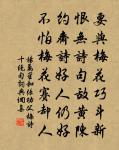 要與梅花巧斗新
恨無詩句黃陳
約齋詩好人仍好
不怕梅花賽却人
楊萬里和張功父梅詩
十絕句詞典網集